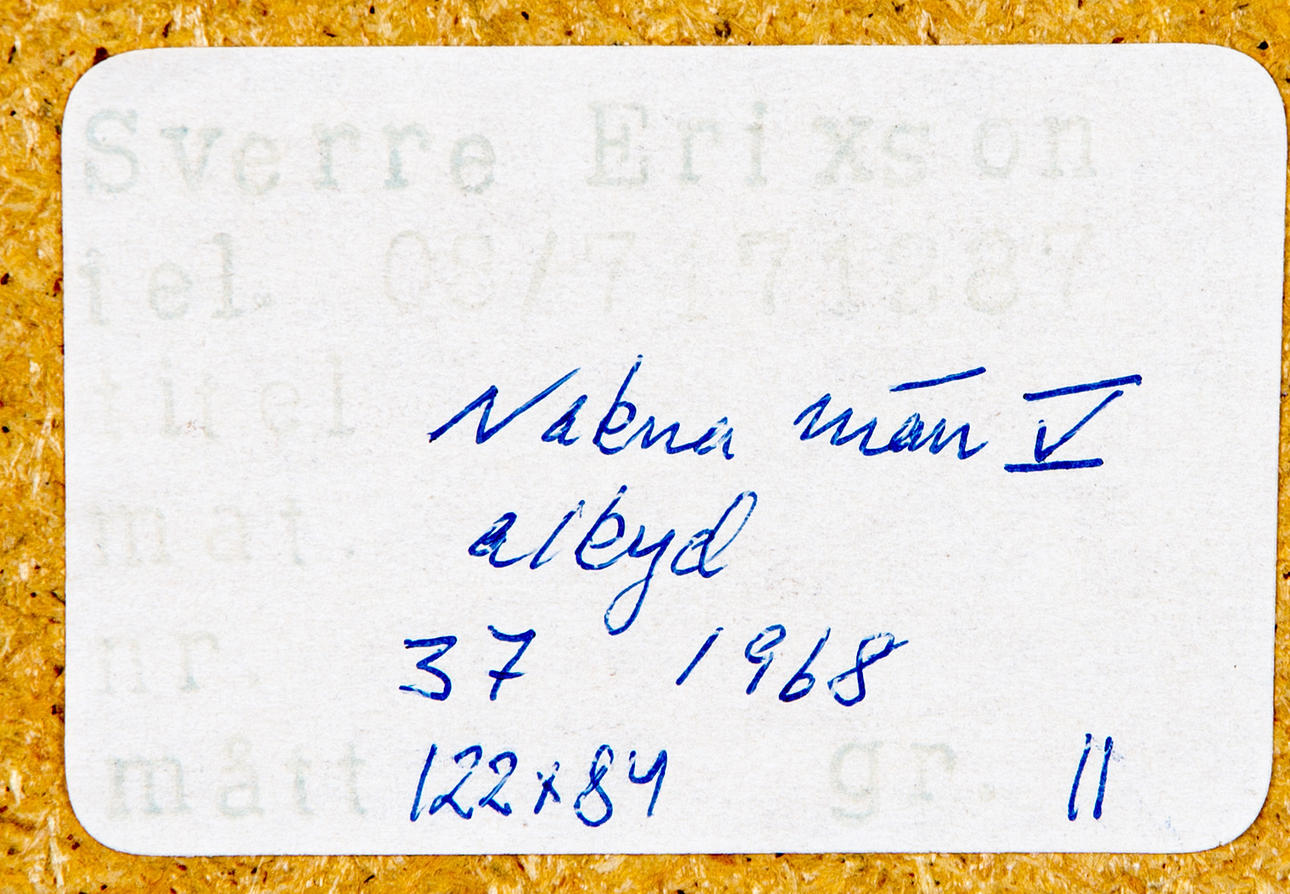 Sverre Erixson
tel.
titel Nakna män V
mat. alkyd
nr. 37 1968
mått 122x84 gr. 11